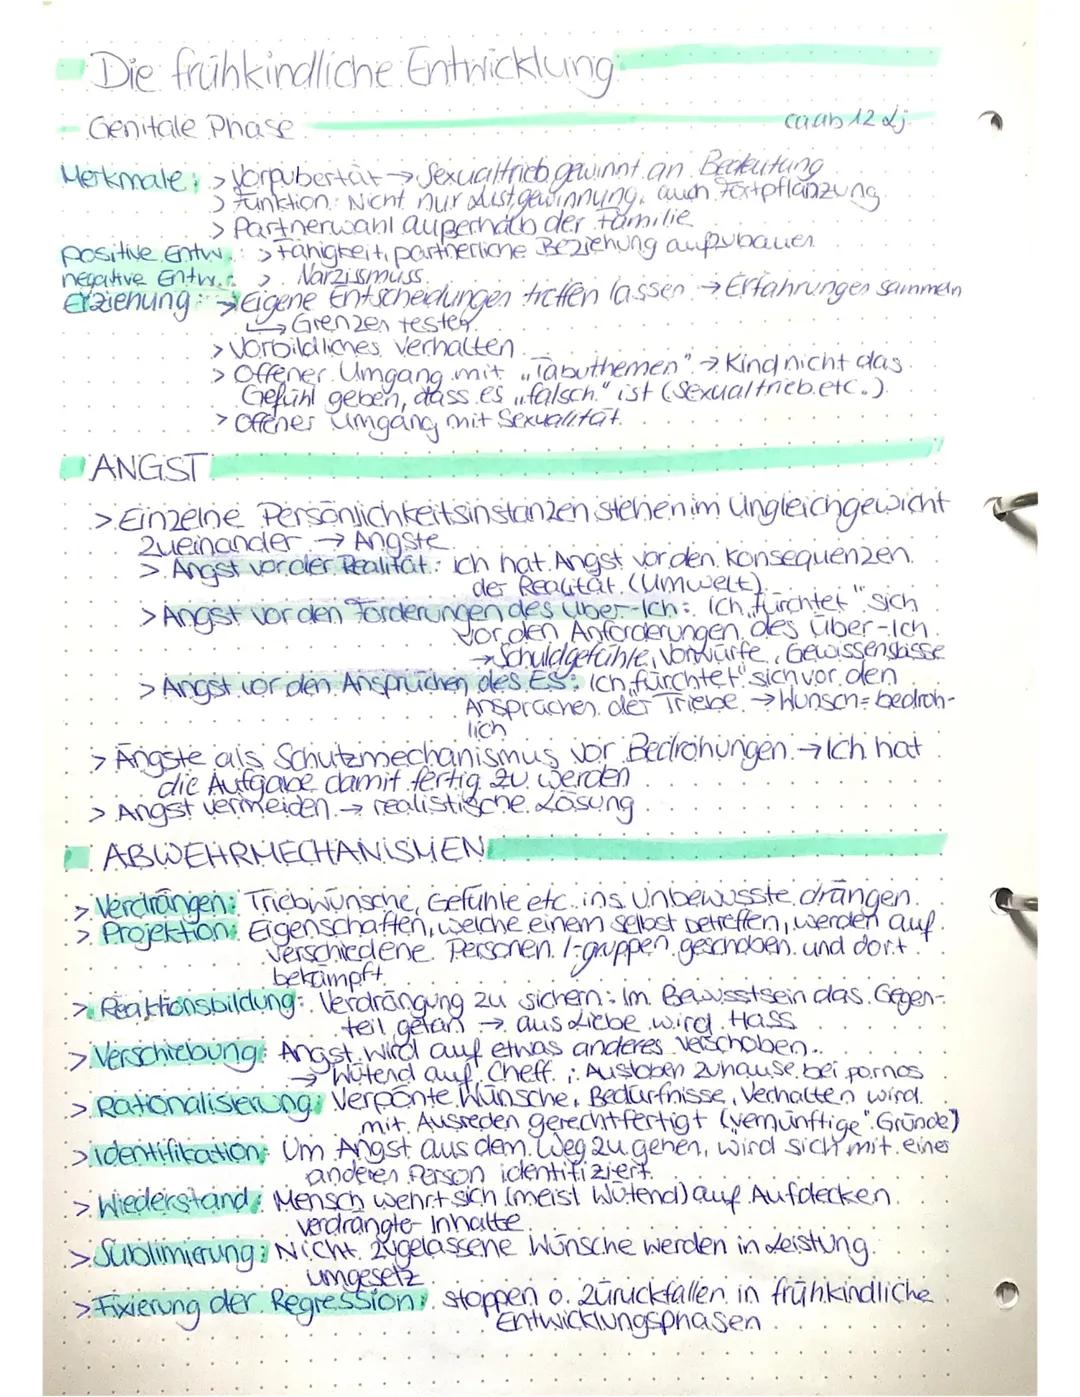 Die frühkindliche Entwicklung
Genitale Phase ca ab 12 Lj.
Merkmale: > Vorpubertät → Sexualtrieb gewinnt an Bedeutung
> Funktion: Nicht nur Lustgewinnung, auch Fortpflanzung
> Partnerwahl außerhalb der Familie
positive Entw.: > Fähigkeit, partnerliche Beziehung aufzubauen
negative Entw.: > Narzissmuss
Erziehung: → Eigene Entscheidungen treffen lassen → Erfahrungen sammeln
↳ Grenzen testen
> Vorbildliches Verhalten
> Offener Umgang mit „Tabuthemen" → Kind nicht das
Gefühl geben, dass es „falsch" ist (Sexualtrieb etc.)
> Offenes Umgang mit Sexualität
ANGST
> Einzelne Persönlichkeitsinstanzen stehen im Ungleichgewicht
zueinander → Ängste
> Angst vor der Realität: Ich hat Angst vor den Konsequenzen
der Realität (Umwelt)
> Angst vor den Forderungen des Über-Ich: Ich „fürchtet" sich
vor den Anforderungen des Über-Ich
→ Schuldgefühle, Vorwürfe, Gewissensbisse
> Angst vor den Ansprüchen des ES: Ich „fürchtet" sich vor den
Ansprüchen der Triebe → Wunsch = bedroh-
lich
> Ängste als Schutzmechanismus vor Bedrohungen → Ich hat
die Aufgabe damit fertig zu werden
> Angst vermeiden → realistische Lösung
ABWEHRMECHANISMEN
> Verdrängen: Triebwünsche, Gefühle etc. ins Unbewusste drängen
> Projektion: Eigenschaften, welche einem selbst betreffen, werden auf
verschiedene Personen /-gruppen geschoben und dort
bekämpft
> Reaktionsbildung: Verdrängung zu sichern: Im Bewusstsein das Gegen-
teil getan → aus Liebe wird Hass
> Verschiebung: Angst wird auf etwas anderes verschoben
→ Wütend auf Cheff : Austoben zuhause bei pornos
> Rationalisierung: Verpönte Wünsche, Bedürfnisse, Verhalten wird
mit Ausreden gerechtfertigt („vernünftige" Gründe)
> identifikation: Um Angst aus dem Weg zu gehen, wird sich mit einer
anderen Person identifiziert
> Wiederstand: Mensch wehrt sich (meist wütend) auf Aufdecken
verdrängter Inhalte
> Sublimierung: Nicht zugelassene Wünsche werden in Leistung
umgesetz
> Fixierung der Regression: stoppen o. zurückfallen in frühkindliche
Entwicklungsphasen